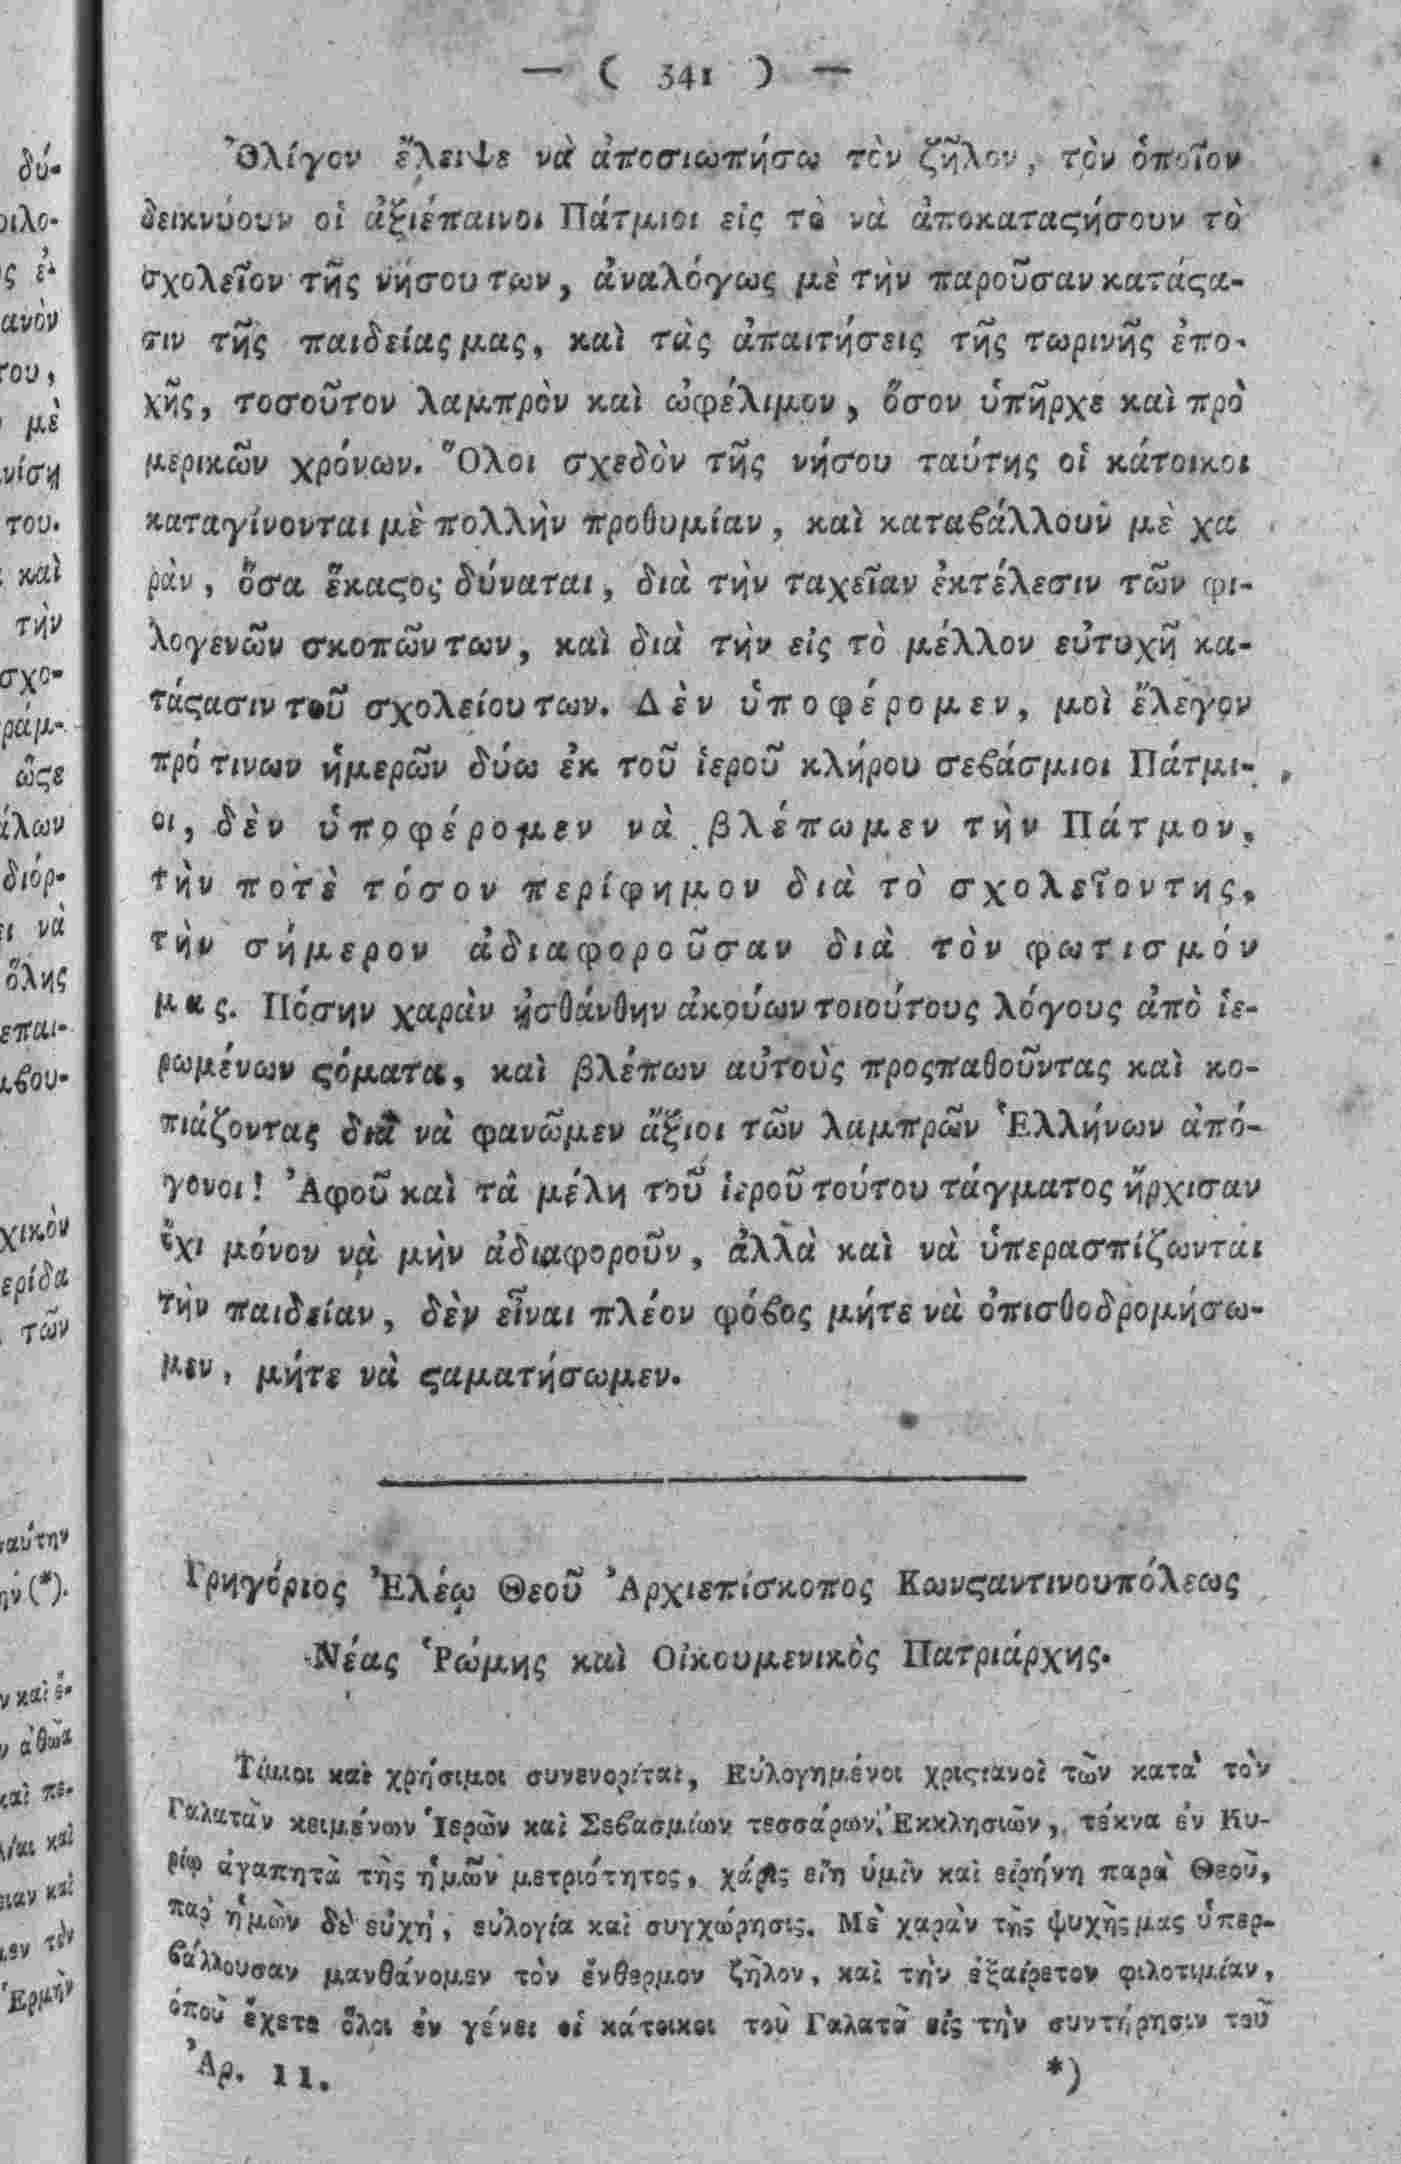 — ( 341 ) —
Ὀλίγον ἔλειψε νὰ ἀποσιωπήσω τὸν ζῆλον, τὸν ὁποῖον
δεικνύουν οἱ ἀξιέπαινοι Πάτμιοι εἰς τὸ νὰ ἀποκαταϛήσουν τὸ
σχολεῖον τῆς νήσου των, ἀναλόγως μὲ τὴν παροῦσαν κατάϛα-
σιν τῆς παιδείας μας, καὶ τὰς ἀπαιτήσεις τῆς τωρινῆς ἐπο-
χῆς, τοσοῦτον λαμπρὸν καὶ ὠφέλιμον, ὅσον ὑπῆρχε καὶ πρὸ
μερικῶν χρόνων. Ὅλοι σχεδὸν τῆς νήσου ταύτης οἱ κάτοικοι
καταγίνονται μὲ πολλὴν προθυμίαν, καὶ καταβάλλουν μὲ χα
ρὰν, ὅσα ἕκαϛος δύναται, διὰ τὴν ταχεῖαν ἐκτέλεσιν τῶν φι-
λογενῶν σκοπῶν των, καὶ διὰ τὴν εἰς τὸ μέλλον εὐτυχῆ κα-
τάϛασιν τοῦ σχολείου των. Δὲν ὑποφέρομεν, μοὶ ἔλεγον
πρό τινων ἡμερῶν δύω ἐκ τοῦ ἱεροῦ κλήρου σεβάσμιοι Πάτμι-
οι, δὲν ὑποφέρομεν νὰ βλέπωμεν τὴν Πάτμον,
τὴν ποτὲ τόσον περίφημον διὰ τὸ σχολεῖον της,
τὴν σήμερον ἀδιαφοροῦσαν διὰ τὸν φωτισμόν
μας. Πόσην χαρὰν ᾐσθάνθην ἀκούων τοιούτους λόγους ἀπὸ ἱε-
ρωμένων ϛόματα, καὶ βλέπων αὐτοὺς προςπαθοῦντας καὶ κο-
πιάζοντας διὰ νὰ φανῶμεν ἄξιοι τῶν λαμπρῶν Ἑλλήνων ἀπό-
γονοι! Ἀφοῦ καὶ τὰ μέλη τοῦ ἱεροῦ τούτου τάγματος ἤρχισαν
ὄχι μόνον νὰ μὴν ἀδιαφοροῦν, ἀλλὰ καὶ νὰ ὑπερασπίζωνται
τὴν παιδείαν, δὲν εἶναι πλέον φόβος μήτε νὰ ὀπισθοδρομήσω-
μεν, μήτε νὰ ϛαματήσωμεν.
Γρηγόριος Ἐλέῳ Θεοῦ Ἀρχιεπίσκοπος Κωνϛαντινουπόλεως
Νέας Ῥώμης καὶ Οἰκουμενικὸς Πατριάρχης.
Τίμιοι καὶ χρήσιμοι συνενορίται, Εὐλογημένοι χριϛιανοὶ τῶν κατὰ τὸν
Γαλατᾶν κειμένων Ἱερῶν καὶ Σεβασμίων τεσσάρων Ἐκκλησιῶν, τέκνα ἐν Κυ-
ρίῳ ἀγαπητὰ τῆς ἡμῶν μετριότητος, χάρις εἴη ὑμῖν καὶ εἰρήνη παρὰ Θεοῦ,
παρ' ἡμῶν δὲ εὐχὴ, εὐλογία καὶ συγχώρησις. Μὲ χαρὰν τῆς ψυχῆς μας ὑπερ-
βάλλουσαν μανθάνομεν τὸν ἔνθερμον ζῆλον, καὶ τὴν ἐξαίρετον φιλοτιμίαν,
ὁποῦ ἔχετε ὅλοι ἐν γένει οἱ κάτοικοι τοῦ Γαλατᾶ εἰς τὴν συντήρησιν τοῦ
Ἀρ. 11. *)